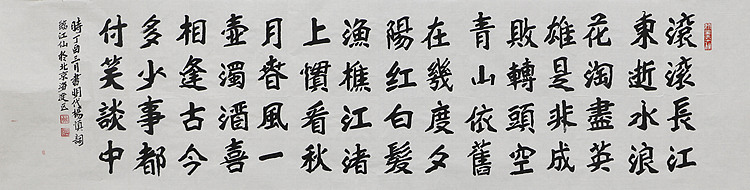 滾滾長江
東逝水浪
花淘盡英
雄是非成
敗轉頭空
青山依舊
在幾度夕
陽红白髮
漁樵江渚
上慣看秋
月春風一
壺濁酒喜
相逢古今
多少事都
付笑談中
時丁酉三月書明代楊慎詞
臨江仙於北京